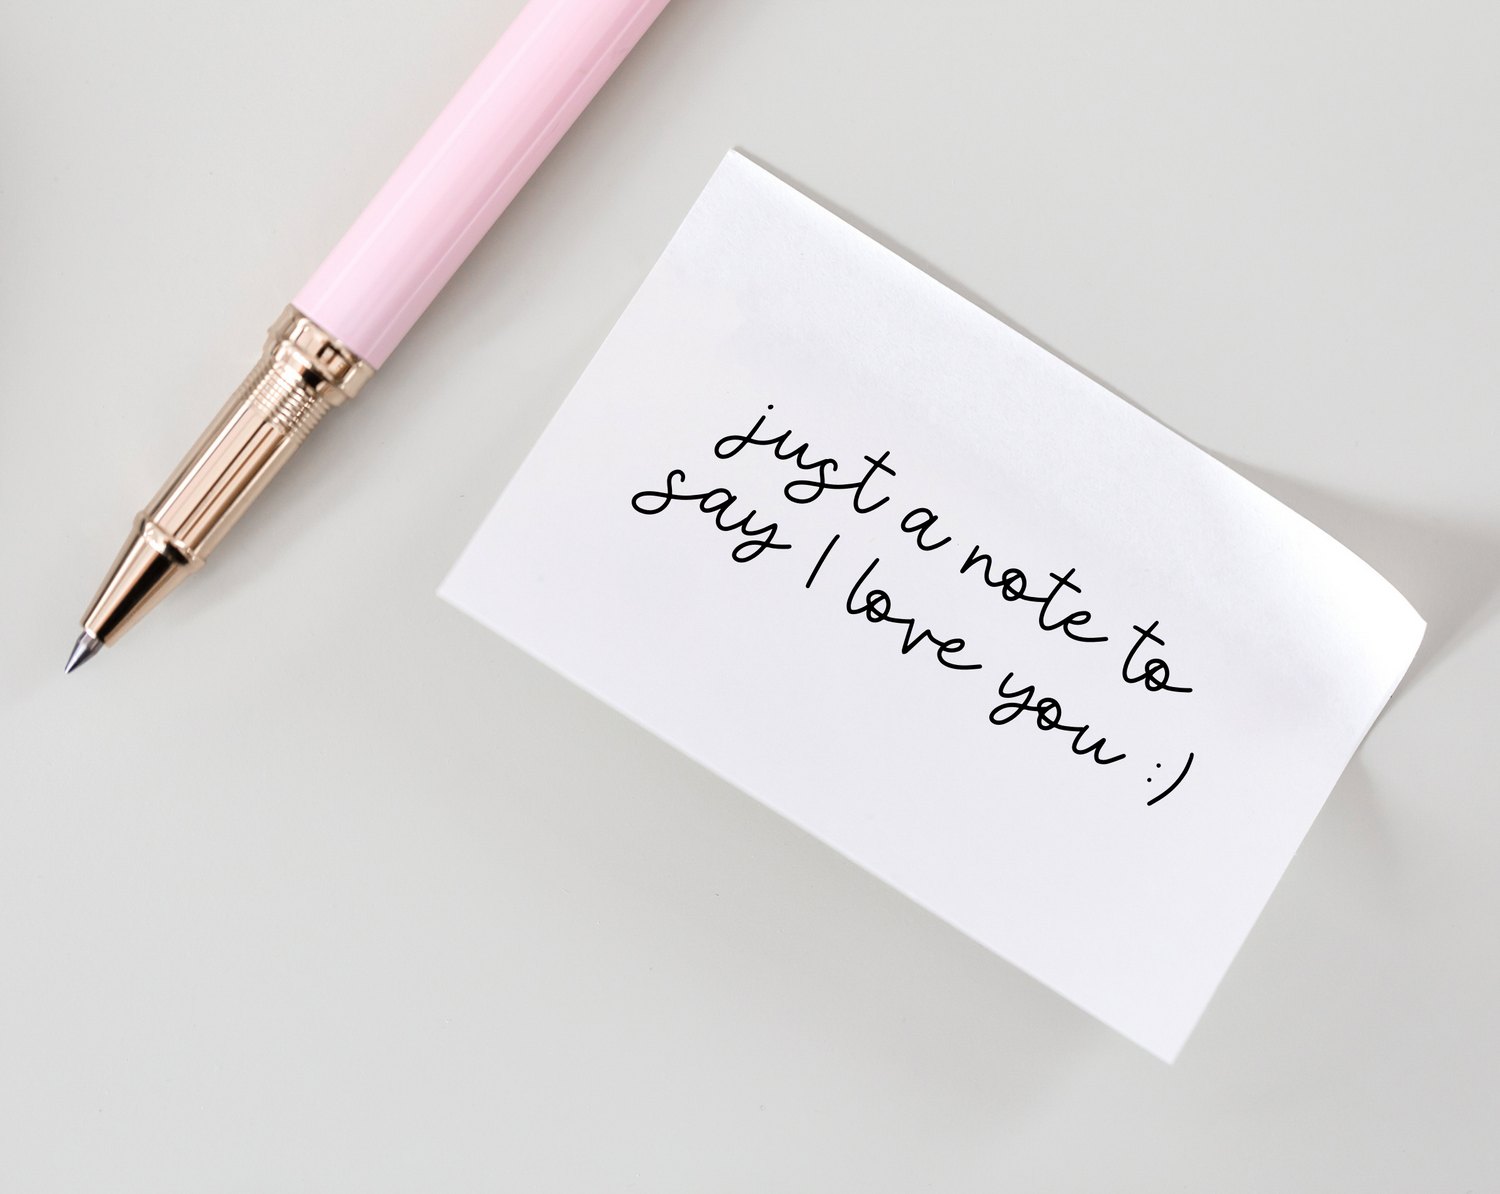 just a note to
say I love you :)